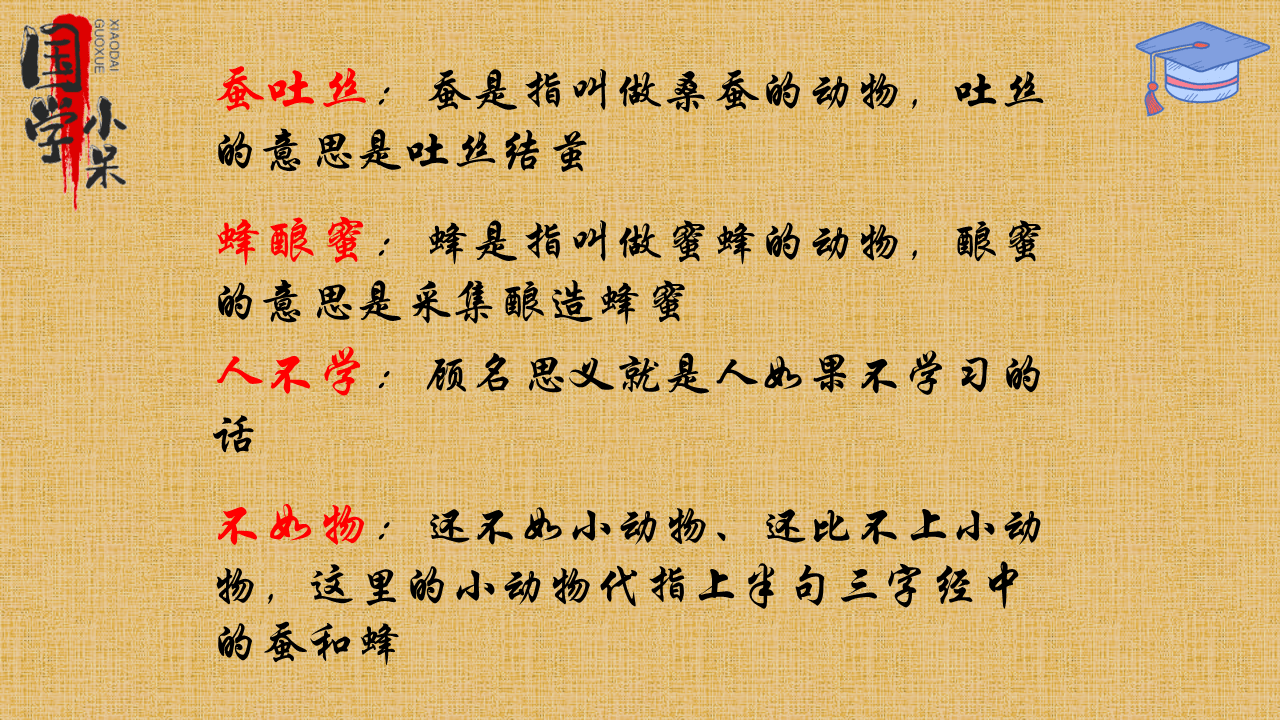 国学小呆
XIAODAI
GUOXUE
蚕吐丝：蚕是指叫做桑蚕的动物，吐丝
的意思是吐丝结茧
蜂酿蜜：蜂是指叫做蜜蜂的动物，酿蜜
的意思是采集酿造蜂蜜
人不学：顾名思义就是人如果不学习的
话
不如物：还不如小动物、还比不上小动
物，这里的小动物代指上半句三字经中
的蚕和蜂